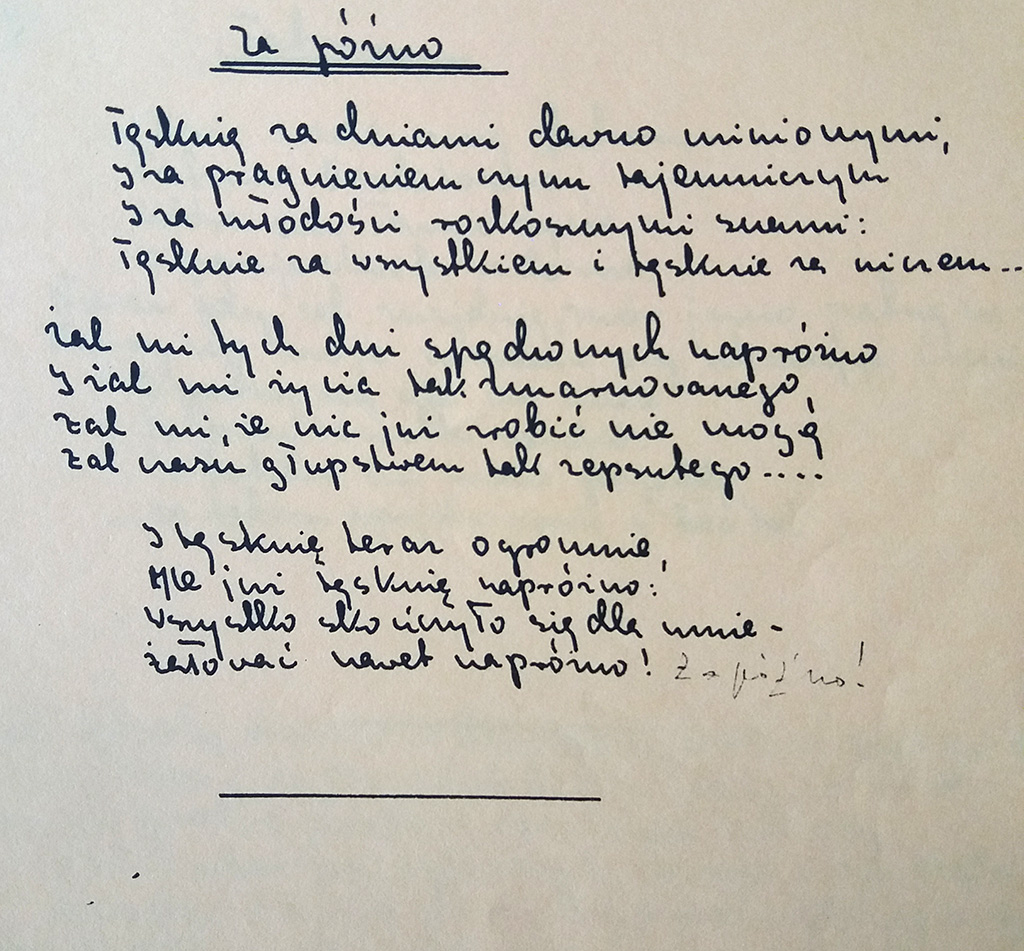 Za późno
Tęsknię za dniami dawno minionymi,
I za pragnieniem czymś tajemniczym
I za młodości rozkosznymi snami:
Tęsknię za wszystkiem i tęsknię za niczem...
Żal mi tych dni spędzonych napróżno
I żal mi życia tak zmarnowanego,
Żal mi, że nic już zrobić nie mogę
Żal naszu głupstwem tak zepsutego....
I tęsknię teraz ogromnie,
Ale już tęsknię napróżno:
Wszystko skończyło się dla mnie -
żałować nawet napróżno! Za późno!